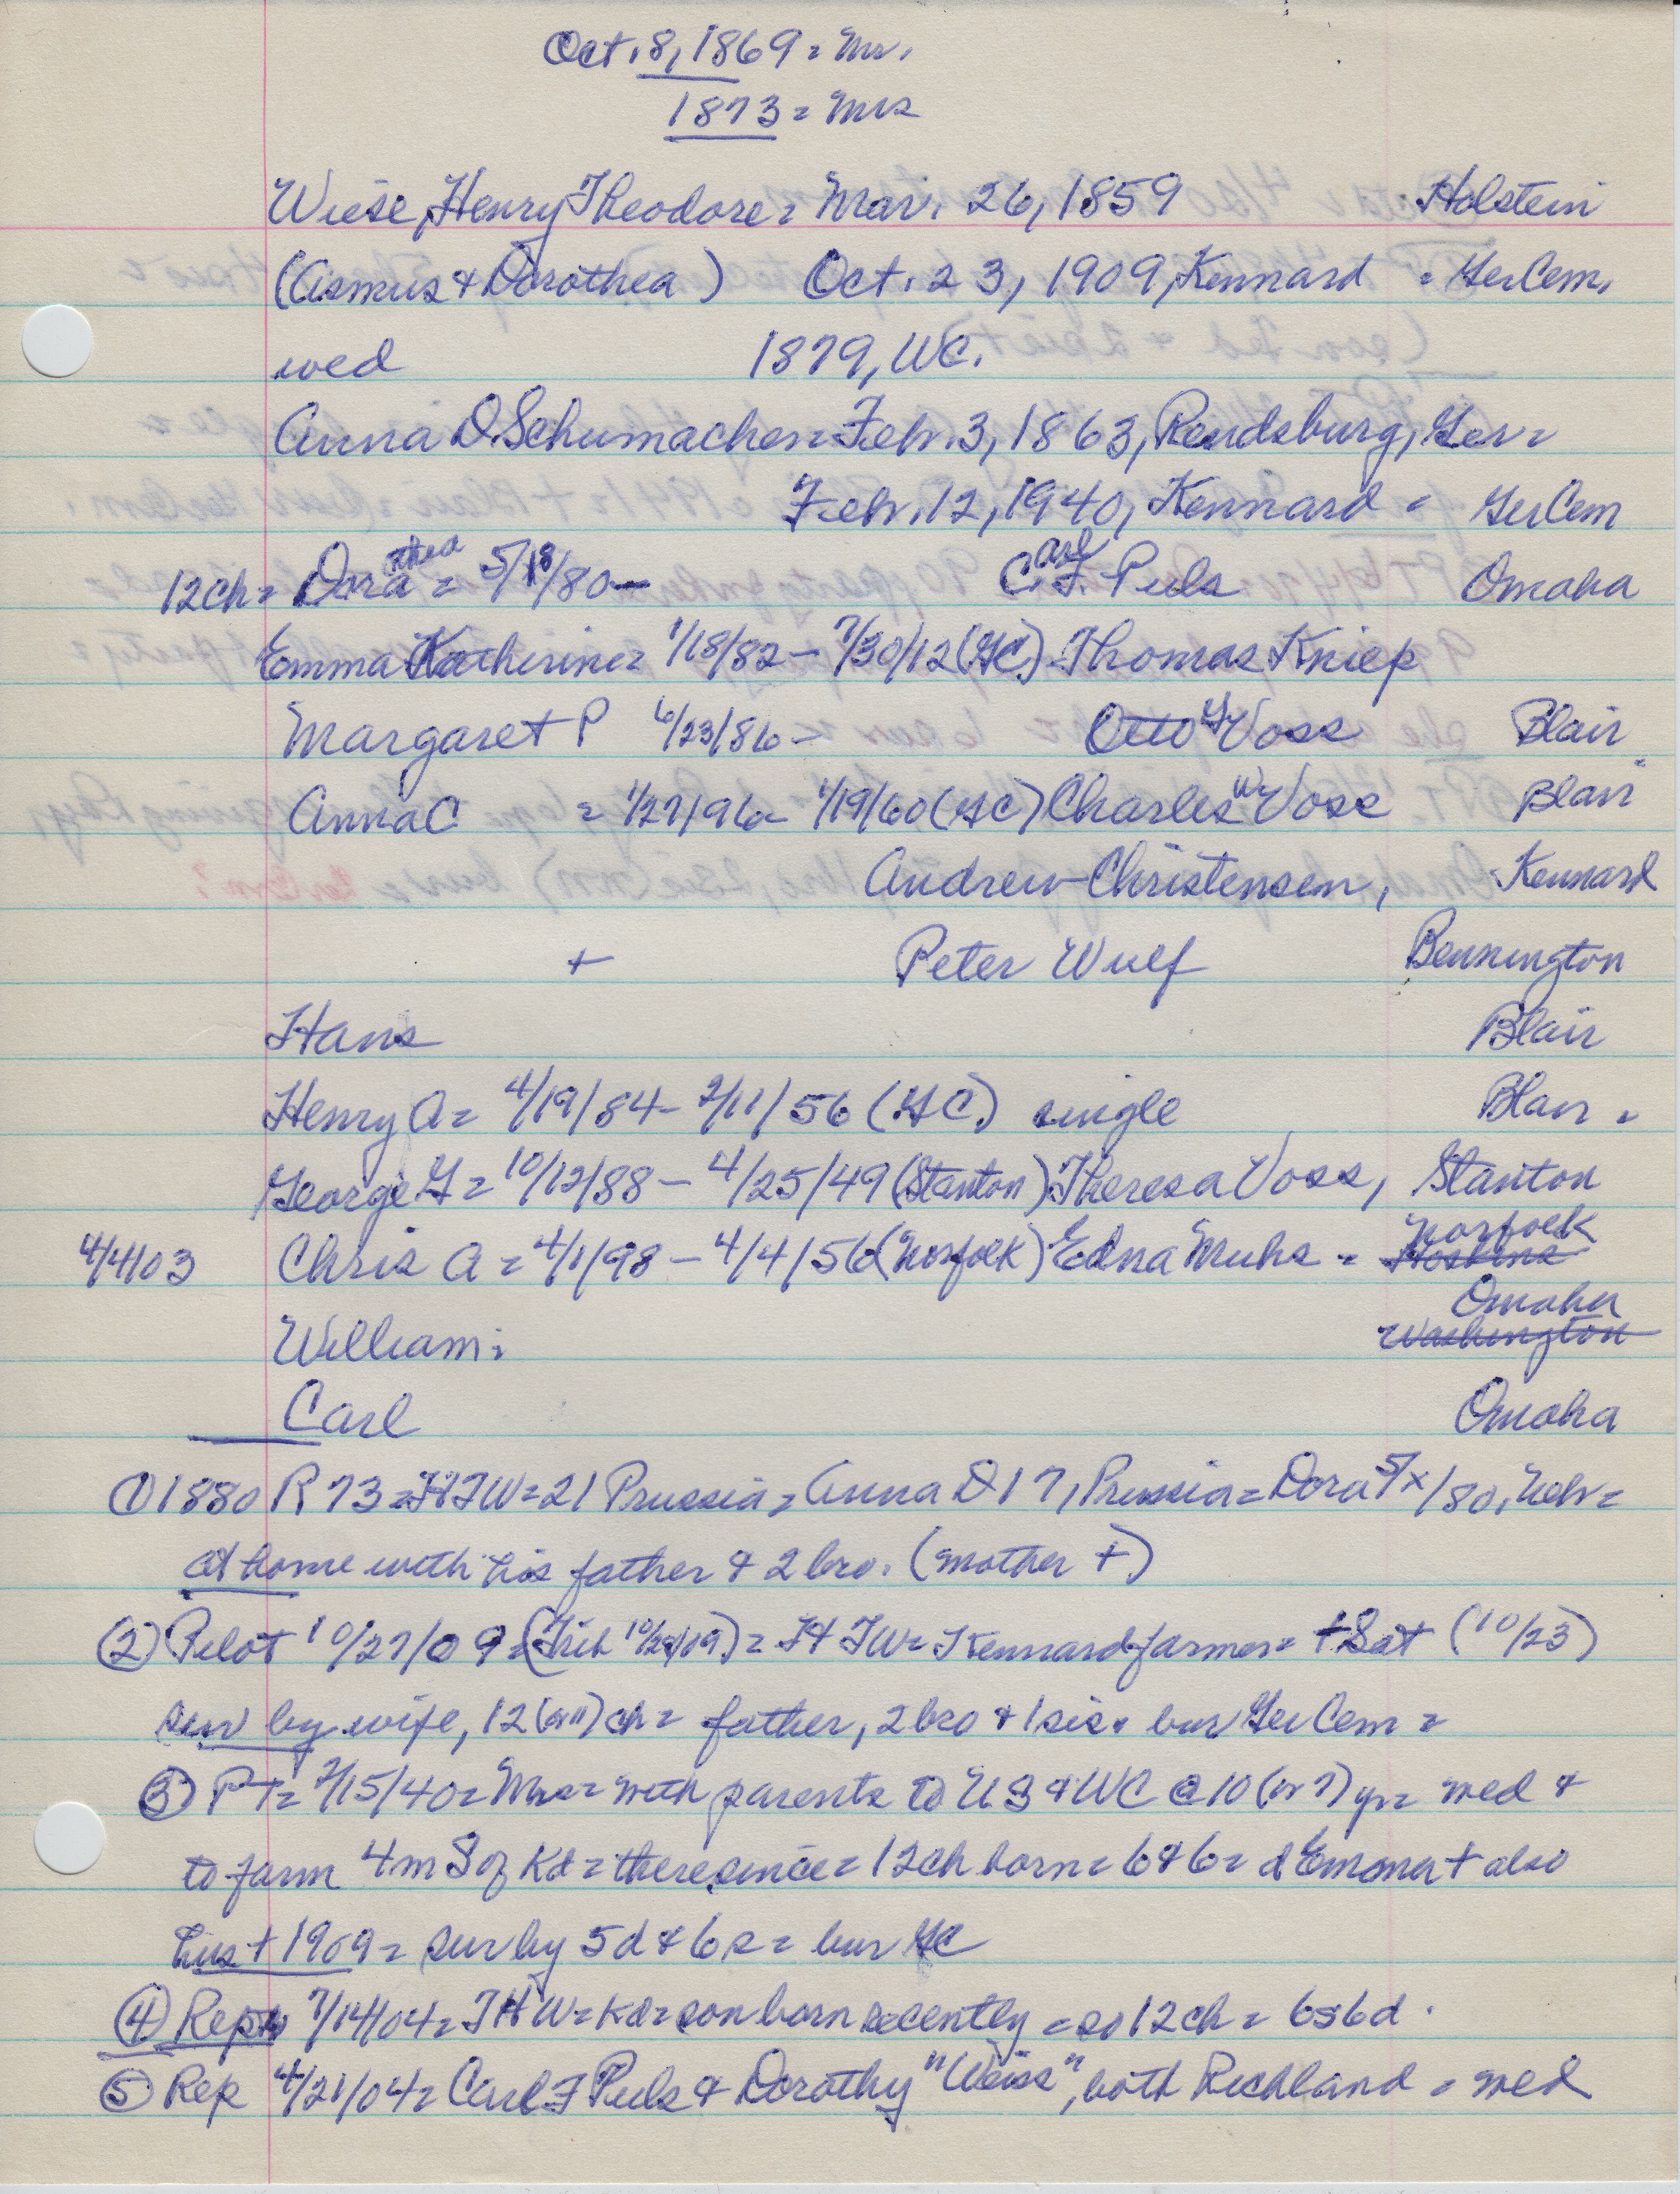 Oct. 8, 1869 = Mr.
1873 = Mrs
Wiese, Henry Theodore = Mar. 26, 1859 Holstein
(Asmus & Dorothea) Oct. 23, 1909, Kennard = Ger Cem.
wed 1879, WC.
Anna D. Schumacher = Feb. 3, 1863, Rendsburg, Ger =
Feb. 12, 1940, Kennard = Ger Cem
12ch = Dorathea = 5/18/80 — Carl F. Puls Omaha
Emma Katherine = 1/18/82 — 7/30/12 (GC) Thomas Kniep
Margaret P 6/23/86 — Otto G Voss Blair
Anna C = 1/27/96 — 1/19/60 (GC) Charles W. Voss Blair
Andrew Christensen, Kennard
+ Peter Wulf Bennington
Hans Blair
Henry A = 4/19/84 — 2/11/56 (GC) single Blair =
George G = 10/12/88 — 4/25/49 (Stanton) Theresa Voss, Stanton
4/4/03 Chris A = 4/1/98 — 4/4/56 (Norfolk) Edna Muhs = Hoskins Norfolk
William = Washington Omaha
Carl Omaha
① 1880 R 73 = HTW = 21 Prussia = Anna D 17, Prussia = Dora 5/x/80, Neb =
at home with his father & 2 bro. (mother +)
② Pilot 10/27/09 = (Trib 10/28/09) = HTW = Kennard farmer = + Sat (10/23)
sur by wife, 12 (or 11) ch = father, 2 bro & 1 sis. bur Ger Cem =
③ PT = 2/15/40 = Mrs = with parents to US & WC @ 10 (or 7) yr = wed &
to farm 4m S of Kd = there since = 12 ch born = 6 & 6 = d Emma + also
hus + 1909 = sur by 5d & 6s = bur GC
④ Rep 7/14/04 = THW = Kd = son born recently = so 12 ch = 6s 6d.
⑤ Rep 4/21/04 = Carl F Puls & Dorothy "Weiss", both Richland = wed